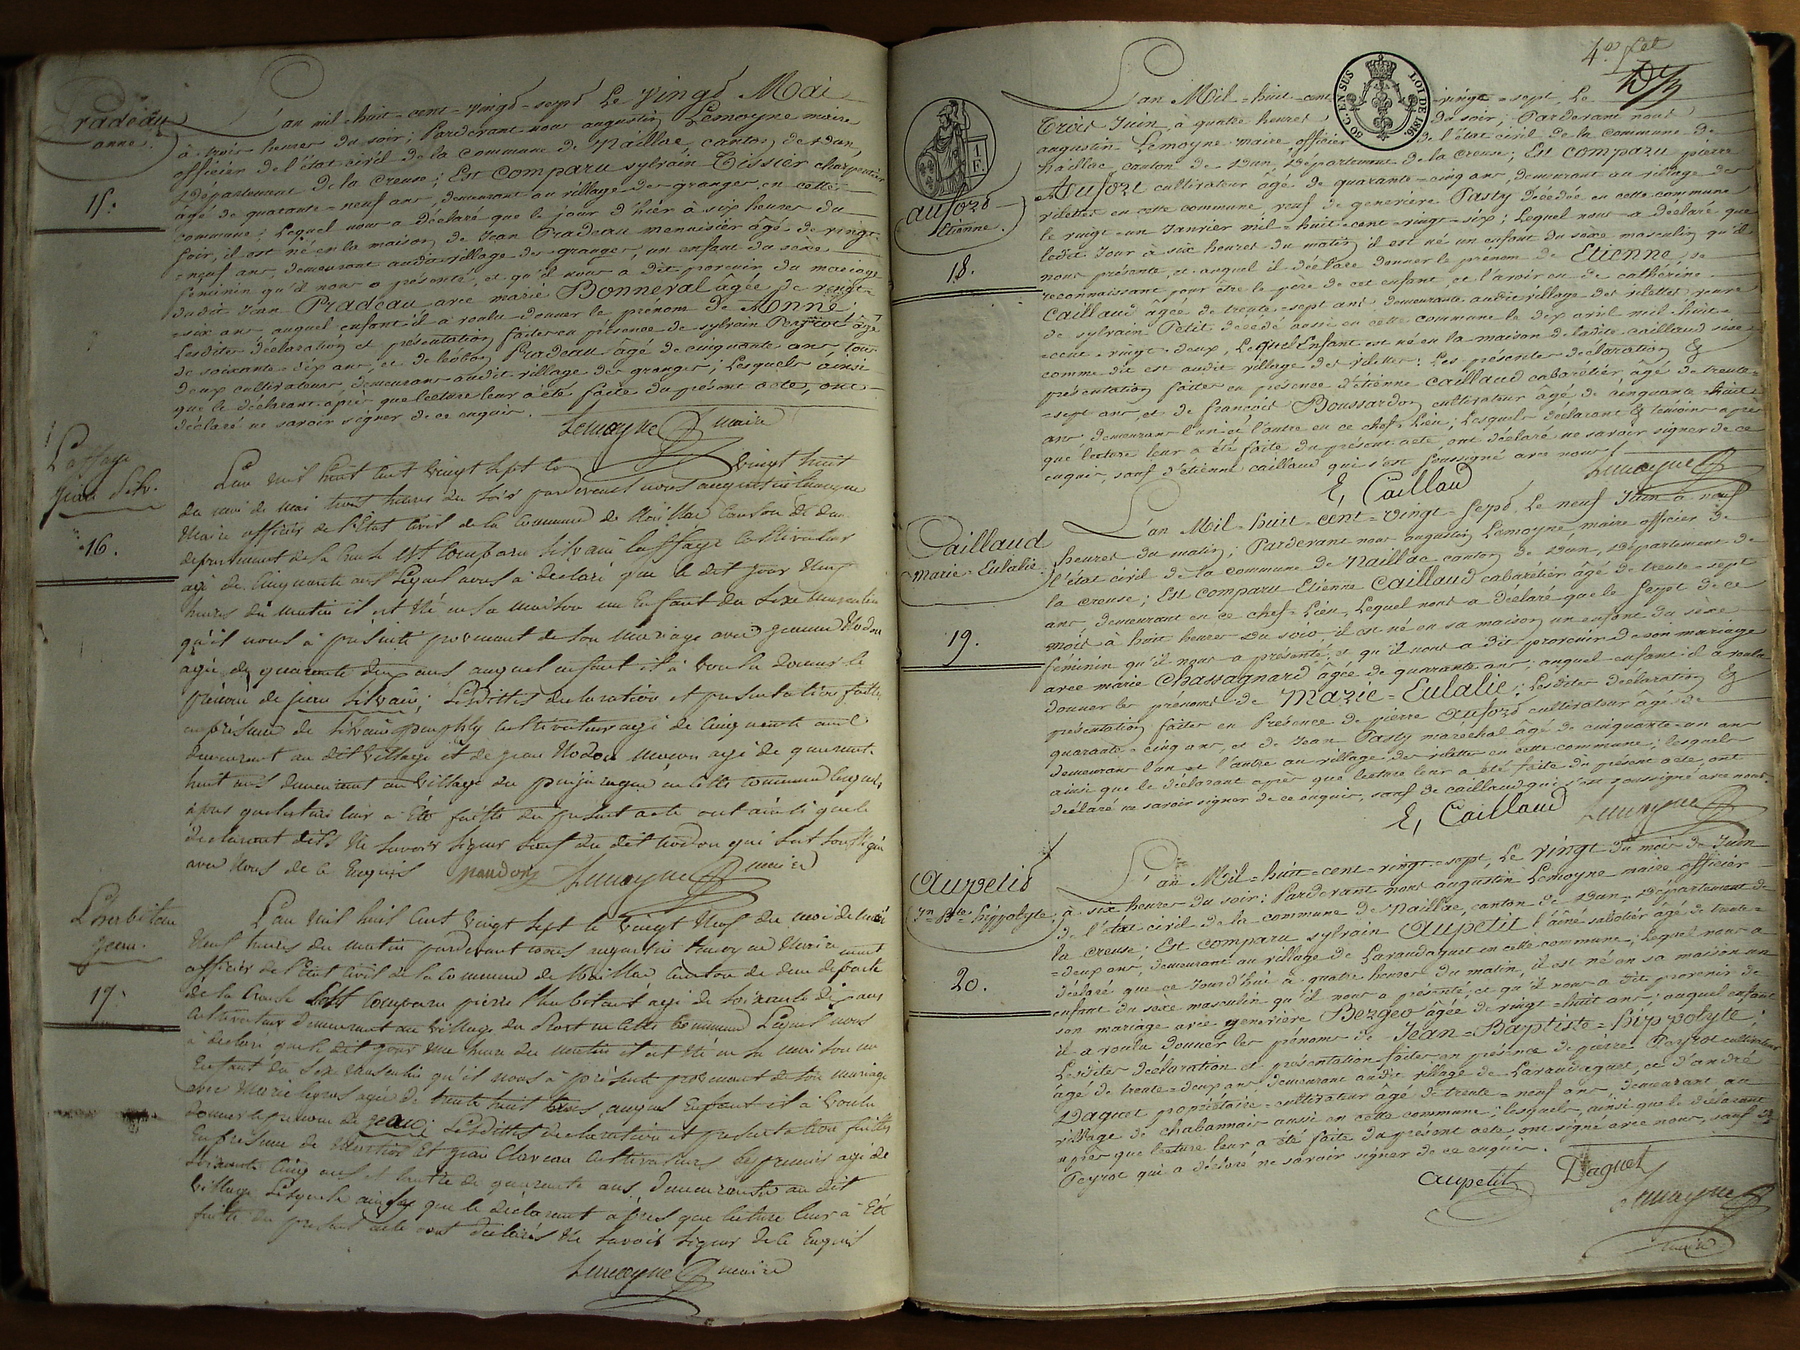 Pradeau
anne.
15.
L'an mil-huit-cent-vingt-sept Le vingt Mai
à trois heures du soir; Pardevant nous augustin Lemoyne maire
officier de l'état civil de la commune de Naillac, canton de dun,
département de la Creuse; Est comparu sylvain Tissier charpentier
âgé de quarante-neuf ans, demeurant au village des granges, en cette
commune; Lequel nous a déclaré que le jour d'hier à six heures du
soir, il est né en la maison de Jean Pradeau menuisier âgé de vingt-
-neuf ans, demeurant audit village des granges, un enfant du sexe
feminin qu'il nous a présenté, et qu'il nous a dit provenir du mariage
dudit Jean Pradeau avec marie Bonneval âgée de vingt-
-six ans, auquel enfant il a voulu donner le prénom de Anne;
Lesdites déclaration et présentation faites en présence de sylvain âgé
de soixante-dix ans, et de léon Pradeau âgé de cinquante ans, tous
deux cultivateurs, demeurans audit village des granges; Lesquels ainsi
que le déclarant après que lecture leur a été faite du présent acte, ont
déclaré ne savoir signer de ce enquis.
Lemoyne maire
Laffaye
jean silv.
16.
L'an mil huit cent vingt sept le vingt huit
du moi de mai huit heures du soir pardevent nous augustin Lemoyne
Maire officier de l'Etat Civil de la Commune de Naillac Canton de dun
département de la Creuse Est Comparu silvain laffaye Cultivateur
agé de Cinquante ans Lequel nous à déclaré que le dit jour Neuf
heures du matin il est Né en sa maison un Enfant du sexe masculin
qu'il nous à présenté provenant de son mariage avec jeanne Nodon
agée de quarente deux ans auquel enfant il à voulu donner le
prénom de jean silvain; Lesdittes declaration et présentation faittes
en présence de silvain cultivateur agé de Cinquente ans
demeurant au dit village et de jean Nodon maçon agé de quarante
huit ans demeurant au village du en cette commune lesquels
après que lecture leur a Eté faitte du présent acte ont ainsi que le
declarant dit Ne savoir signer sauf du dit nodon qui s'est soussigné
avec Nous de ce Enquis Naudon Lemoyne maire
L'herbitau
jean.
17.
L'an mil huit Cent vingt sept le vingt Neuf du moi de mai
Neuf heures du matin pardevant nous augustin Lemoyne Maire
officier de l'Etat Civil de la Commune de Naillac Canton de dun departement
de la Creuse Est Comparu pierre agé de soixante dix ans
Cultivateur demeurant au village du en Cette Commune Lequel nous
à declaré que le dit jour une heure du matin il est Né en sa maison un
Enfant du sexe masculin qu'il nous à présenté provenant de son mariage
avec Marie agée de trente huit ans auquel Enfant il à voulu
donner le prénom de jean; Lesdittes declaration et présentation faittes
En présence de et jean Claveau Cultivateurs le premier agé de
soixante Cinq ans et l'autre de quarante ans, demeurants au dit
village Lesquels ainsi que le déclarant après que lecture leur à Eté
faitte du présent acte ont declarés Ne savoir signer de ce Enquis
Lemoyne maire
4e. flet
50 C. EN SUS
LOI DE 1816.
aufort
Etienne.
18.
L'an Mil-huit-cent-vingt-sept, Le
Trois Juin, à quatre heures du soir; Pardevant nous
augustin Lemoyne maire officier de l'état civil de la commune de
Naillac canton de dun, département de la Creuse; Est comparu pierre
Aufort cultivateur âgé de quarante-cinq ans, demeurant au village des
vilettes en cette commune veuf de geneviève Pasty décédée en cette commune
le vingt-un Janvier mil-huit-cent-vingt-six; Lequel nous a déclaré que
ledit jour à six heures du matin, il est né un enfant du sexe masculin qu'il
nous présente, et auquel il déclare donner le prénom de Etienne, se
reconnaissant pour être le père de cet enfant, et l'avoir eu de catherine
Caillaud âgée de trente-sept ans demeurante audit village des vilettes veuve
de sylvain Petit décédé aussi en cette commune le dix avril mil-huit-
-cent-vingt-deux, Lequel Enfant est né en la maison de ladite caillaud sise
comme dit est audit village des vilettes; Les présentes déclaration &
présentation faites en présence d'étienne caillaud cabaretier âgé de trente-
-sept ans, et de françois Boussardon cultivateur âgé de cinquante-huit
ans demeurans l'un et l'autre en ce chef-Lieu; Lesquels déclarant & témoins après
que lecture leur a été faite du présent acte, ont déclaré ne savoir signer de ce
enquis, sauf d'étienne caillaud qui s'est soussigné avec nous.
E, Caillaud Lemoyne
Caillaud
Marie-Eulalie.
19.
L'an Mil-huit-cent-vingt-sept, Le neuf Juin à neuf
heures du matin; Pardevant nous augustin Lemoyne maire officier de
l'état civil de la commune de Naillac canton de dun, département de
la creuse; Est comparu Etienne Caillaud cabaretier âgé de trente-sept
ans, demeurant en ce chef-Lieu, Lequel nous a déclaré que le sept de ce
mois à huit heures du soir, il est né en sa maison un enfant du sexe
feminin qu'il nous a présenté, et qu'il nous a dit provenir de son mariage
avec marie Chassagnard âgée de quarante ans; auquel enfant il a voulu
donner les prénoms de Marie-Eulalie; Lesdites déclaration &
présentation faites en Présence de pierre Aufort cultivateur âgé de
quarante-cinq ans, et de Jean Pasty maréchal âgé de cinquante-un ans
demeurans l'un et l'autre au village des vilettes en cette commune; lesquels
ainsi que le déclarant après que lecture leur a été faite du présent acte, ont
déclaré ne savoir signer de ce enquis, sauf de caillaud qui s'est soussigné avec nous.
E, Caillaud Lemoyne
Aupetit
Jn. Bte. hippolyte.
20.
L'an Mil-huit-cent-vingt-sept, Le vingt du mois de Juin
à six heures du soir; Pardevant nous augustin Lemoyne maire officier
de l'état civil de la commune de Naillac, canton de dun, département de
la creuse; Est comparu sylvain Aupetit l'aîné sabotier âgé de trente-
-deux ans, demeurant au village de Lavaudaguet en cette commune; Lequel nous a
déclaré que ce Jourd'hui à quatre heures du matin, il est né en sa maison un
enfant du sexe masculin qu'il nous a présenté, et qu'il nous a dit provenir de
son mariage avec geneviève Berger âgée de vingt-huit ans; auquel enfant
il a voulu donner les prénoms de Jean-Baptiste-hippolyte;
Lesdites déclaration et présentation faites en présence de pierre Peyrot cultivateur
âgé de trente-deux ans demeurant audit village de Lavaudaguet, et d'andré
Daguet propriétaire-cultivateur âgé de trente-neuf ans, demeurant au
village de chabannais aussi en cette commune; lesquels, ainsi que le déclarant
après que lecture leur a été faite du présent acte, ont signé avec nous, sauf dud.
Peyrot qui a déclaré ne savoir signer de ce enquis.
aupetit Daguet
Lemoyne
maire